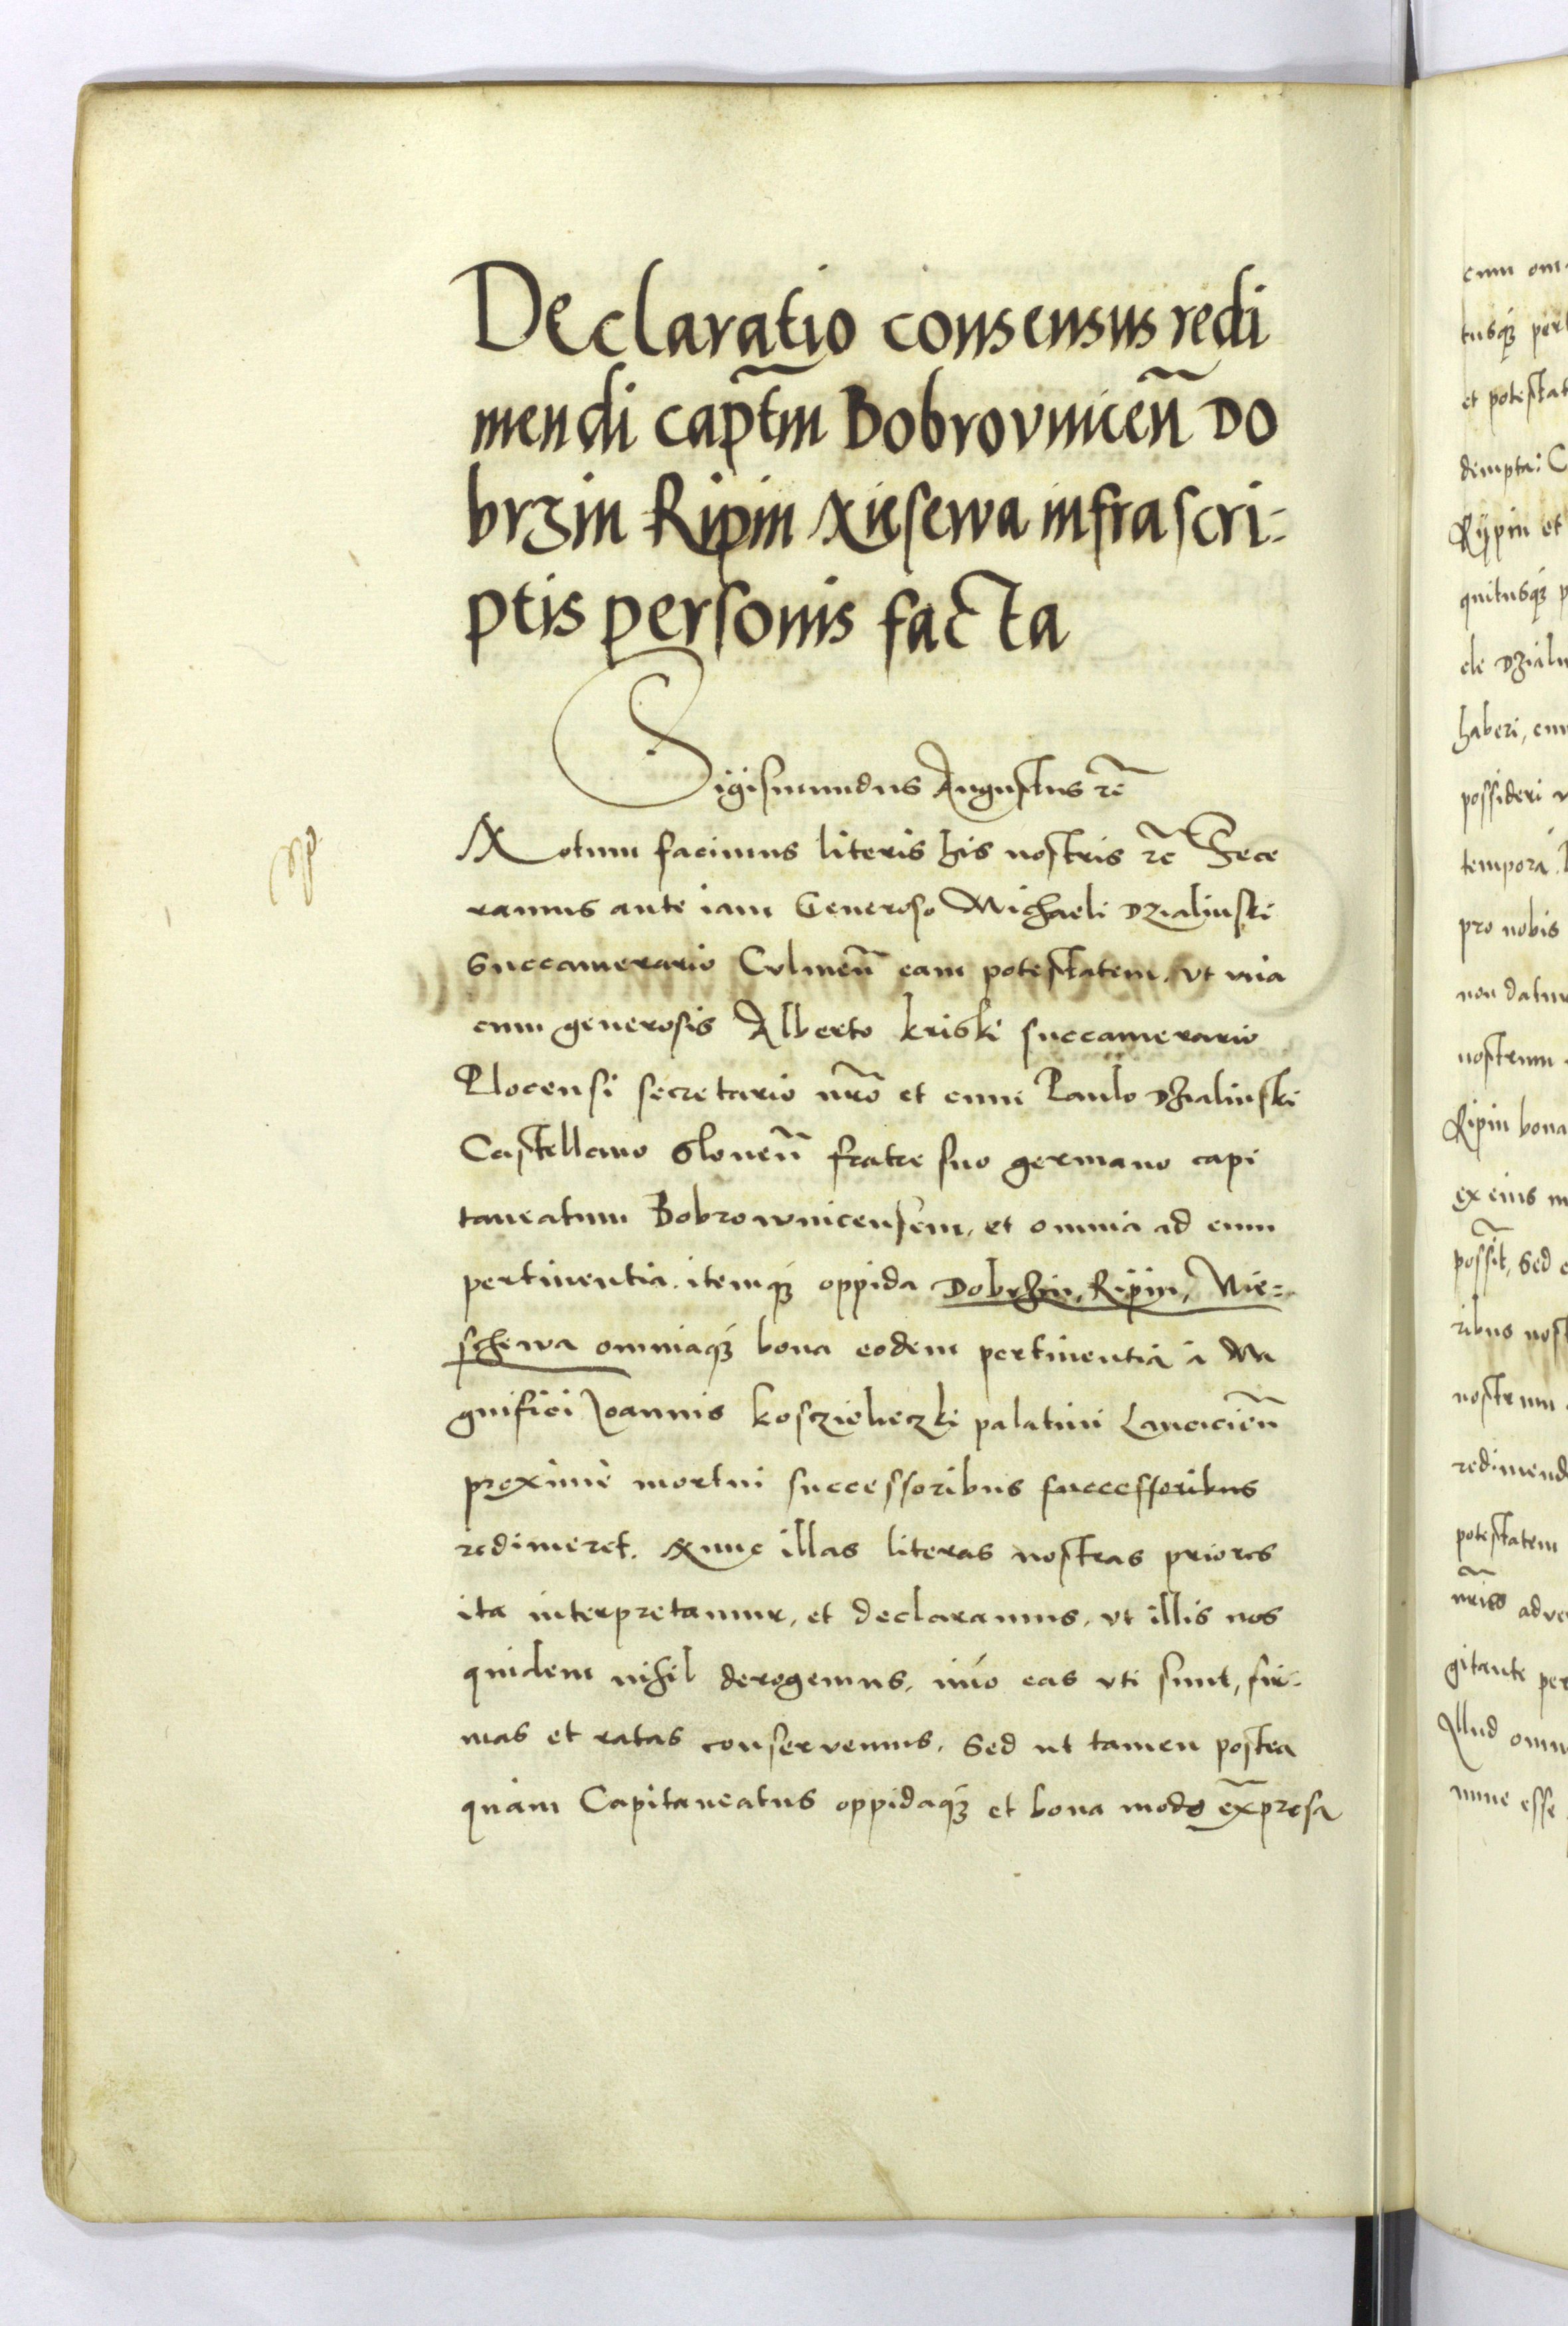 Declaratio consensus redi
mendi capt̃m Bobrovnicen̄ Do
brzin Ripin Niesewa infrascri-
ptis personis facta
Sigismundus Augustus rc̃
Notum facimus literis his nostris rc̃ Fece
ramus ante iam Generoso Michaeli Dzialinski
Succamerario Culmen̄ eam potestatem, vt vna
cum generosis Alberto kriski succamerario
Plocensi secretario nr̃o et cum Paulo Dzialinski
Castellano Slonen̄ fratre suo germano capi
taneatum Bobrownicensem, et omnia ad eum
pertinentia. itemq́ꝫ oppida Dobrzin, Ripin, Nie-
schewa omniaq́ꝫ bona eodem pertinentia à Ma
gnifici Joannis koszieleczki palatini Lancicien̄
proximè mortui successoribus successoribus
redimeret. Nunc illas literas nostras priores
ita interpretamur, et declaramus, vt illis nos
quidem nihil derogemus, imo eas vti sunt, fir-
mas et ratas conservemus. Sed ut tamen postea
quàm Capitaneatus oppidaq́ꝫ et bona modo expresa
cum om
tusq́ꝫ per
et potestat
dempta: C
Rijpin et
quitusq́ꝫ p
de Dzialin
haberi, cum
possideri v
tempora.
pro nobis
non datur
nostrum
Ripin bona
ex eius m
possit, Sed e
ribus nost
nostrum
redimend
potestatem
nr̃is adve
gitante per
Illud omn
nunc esse